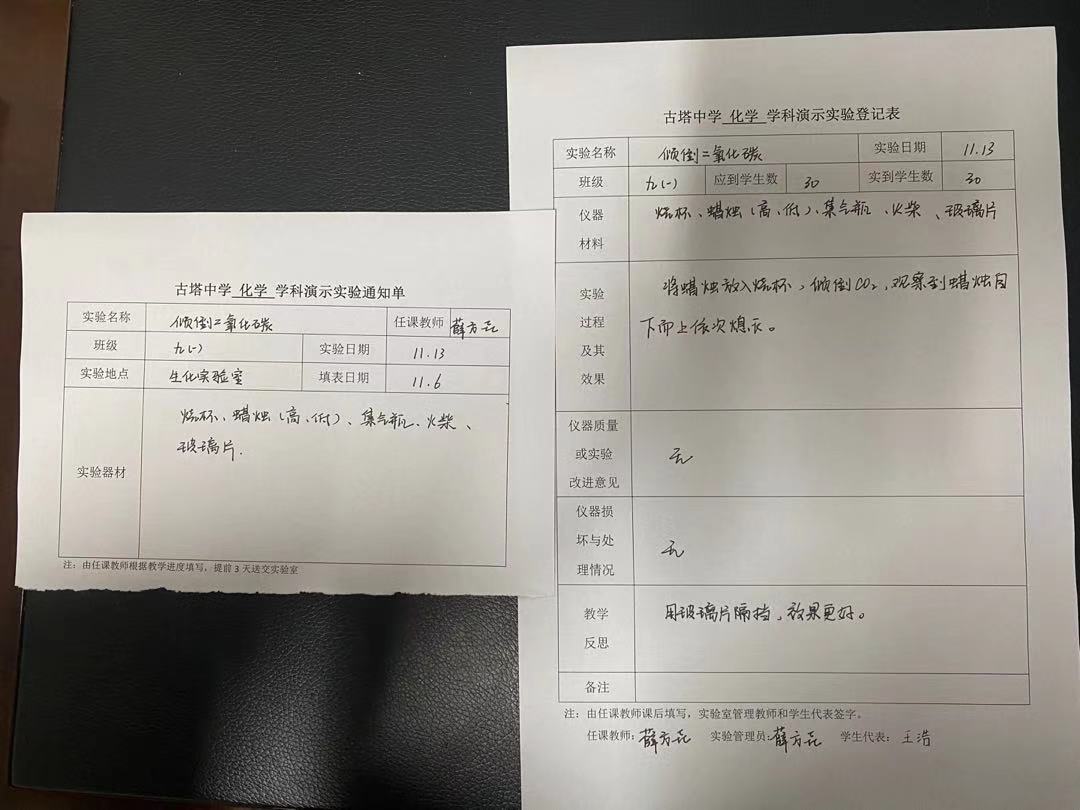 古塔中学 化学 学科演示实验通知单
实验名称 倾倒二氧化碳 任课教师 薛方㐂
班级 九(一) 实验日期 11.13
实验地点 生化实验室 填表日期 11.6
实验器材
烧杯、蜡烛(高、低)、集气瓶、火柴、
玻璃片.
注：由任课教师根据教学进度填写，提前 3 天送交实验室
古塔中学 化学 学科演示实验登记表
实验名称 倾倒二氧化碳 实验日期 11.13
班级 九(一) 应到学生数 30 实到学生数 30
仪器
材料
烧杯、蜡烛(高、低)、集气瓶、火柴、玻璃片
实验
过程
及其
效果
将蜡烛放入烧杯，倾倒CO₂，观察到蜡烛自
下而上依次熄灭。
仪器质量
或实验
改进意见
无
仪器损
坏与处
理情况
无
教学
反思
用玻璃片隔挡，效果更好。
备注
注：由任课教师课后填写，实验室管理教师和学生代表签字。
任课教师：薛方㐂 实验管理员：薛方㐂 学生代表：王浩